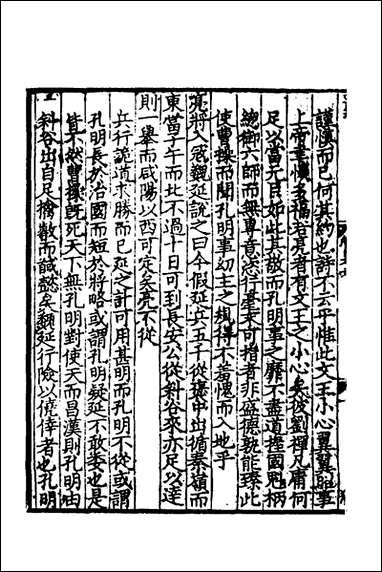 謹慎而已何其約也詩不云乎惟此文王小心翼翼昭事
上帝聿懷多福若亮者有文王之小心矣彼劉禪凡庸何
足以當元目如此其敬而孔明事之靡不盡道握國兵柄
總御六師而無專意恣行毫末可指者非盛德孰能臻此
使曹操而聞孔明事幼主之規得不羞愧而入地乎
亮將入寇魏延說之曰今假延兵五千從褒中出循秦嶺而
東當子午而北不過十日可到長安公從斜谷來亦足以達
則一舉而咸陽以西可定矣亮不從
兵行詭道求勝而已延之計可用甚明而孔明不從或謂
孔明長於治國而短於將略或謂孔明疑延不敢委也是
皆不然曹操既死天下無孔明對使天而昌漢則孔明由
斜谷出自足擒叡而馘懿矣魏延行險以僥倖者也孔明